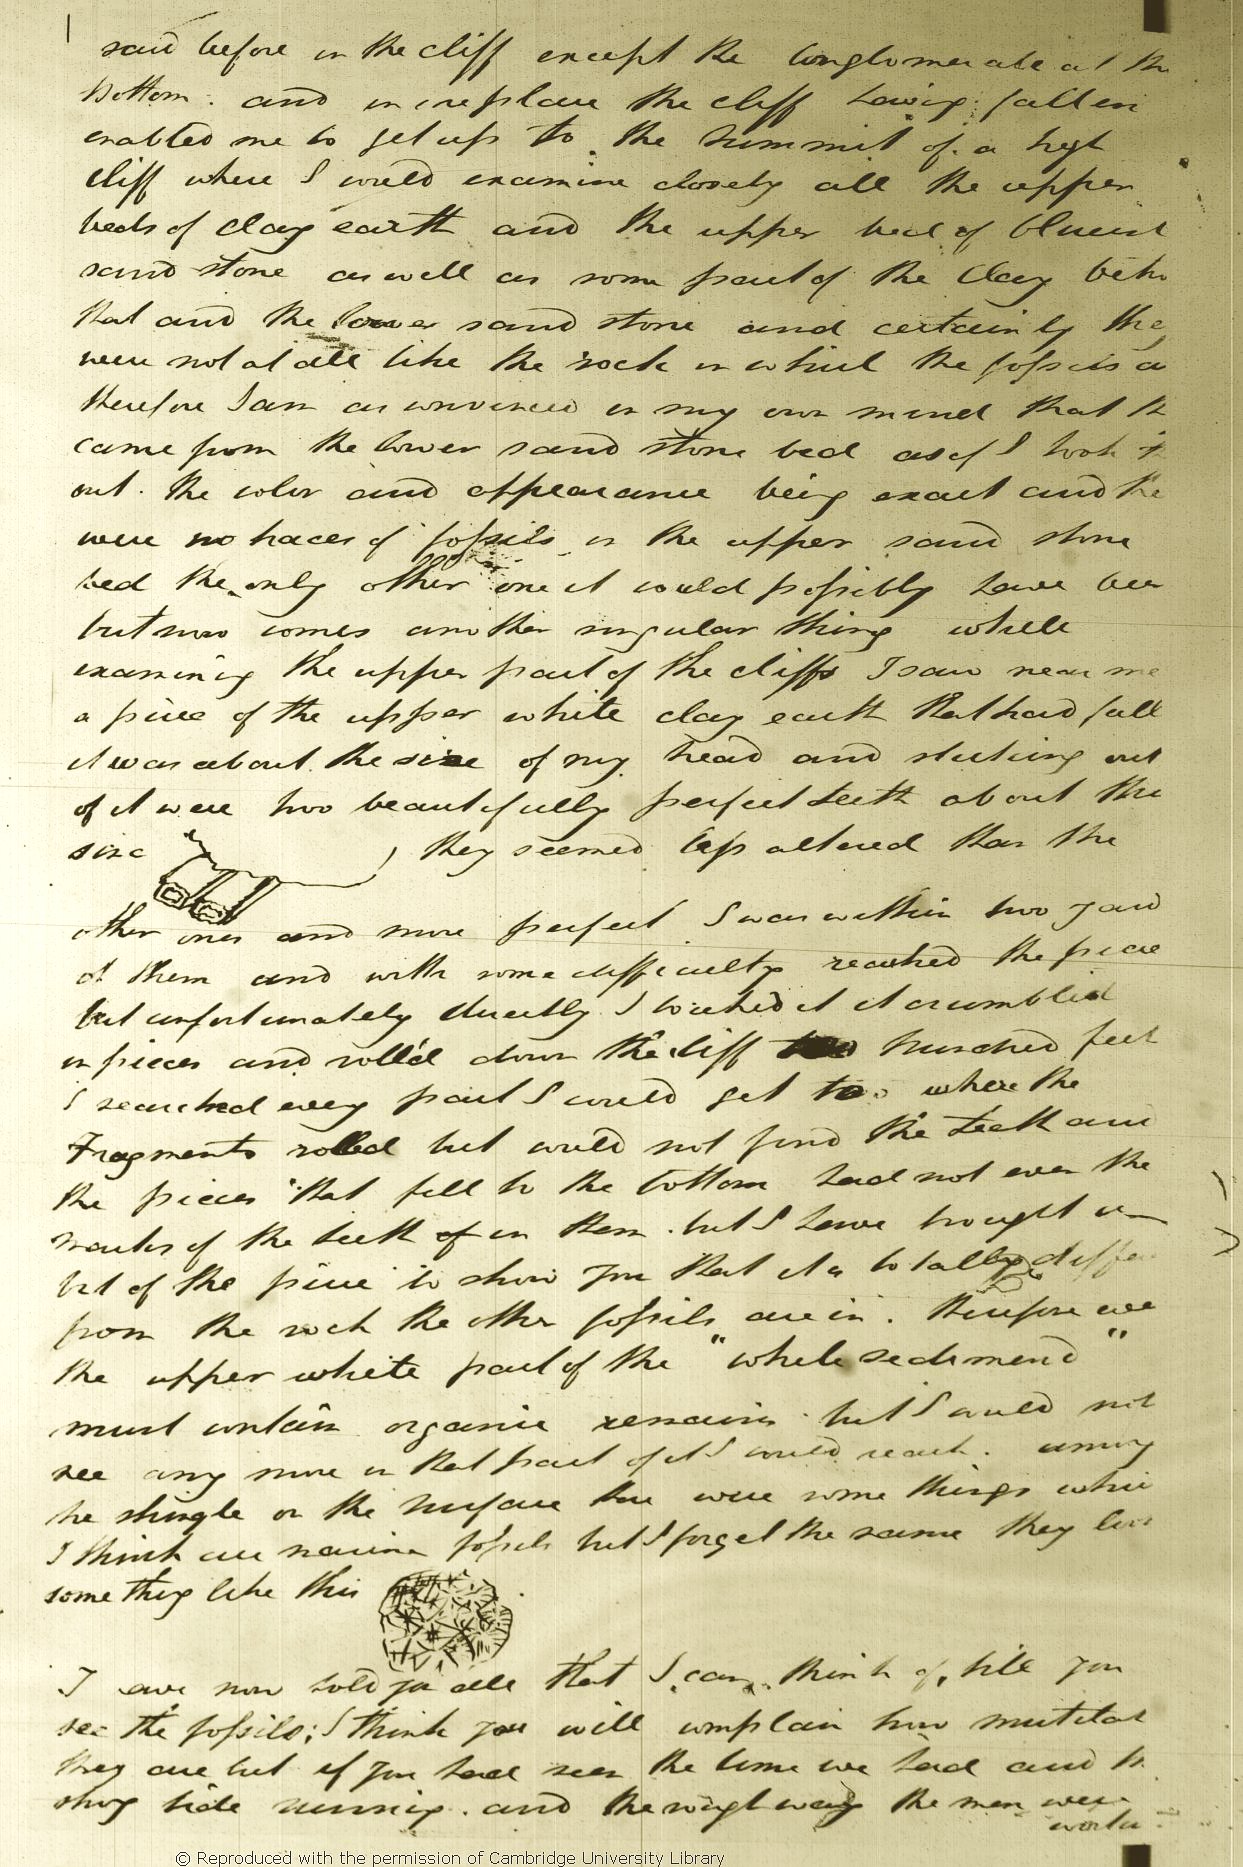 said before in the cliff except the conglomerate at the
bottom. and in one place the cliff having fallen
enabled me to get up to the summit of a high
cliff where I could examine closely all the upper
beds of clay earth and the upper bed of blueish
sand stone as well as some part of the clay betw
that and the lower sand stone and certainly they
were not at all like the rock in which the fossils a
therefore I am as convinced in my own mind that th
came from the lower sand stone bed as if I took th
out. the color and appearance being exact and the
were no traces of fossils in the upper sand stone
bed the only other one it could possibly have been
but now comes another singular thing while
examining the upper part of the cliffs I saw near me
a piece of the upper white clay earth that had fall
it was about the size of my head and sticking out
of it were two beautifully perfect teeth about this
size they seemed less altered than the
other ones and more perfect I was within two yard
of them and with some difficulty reached the piece
but unfortunately directly I touched it it crumbled
in pieces and roll'd down the cliff hundred feet
I searched every part I could get to where the
Fragments rolled but could not find the teeth and
the pieces that fell to the bottom had not even the
marks of the teeth in them. but I have brought a
bit of the piece to show you that it is totally differ
from the rock the other fossils are in. therefore
the upper white part of the "whole sediment"
must contain organic remains. but I could not
see any more in that part of it I could reach. among
the shingle on the surface there were some things whi
I think are marine fossils but I forget the name they look
some thing like this
I have now told you all that I can think of, till you
see the fossils; I think you will complain how mutilat
they are but if you had seen the time we had and th
strong tide running. and the rough way the men were
workin
© Reproduced with the permission of Cambridge University Library